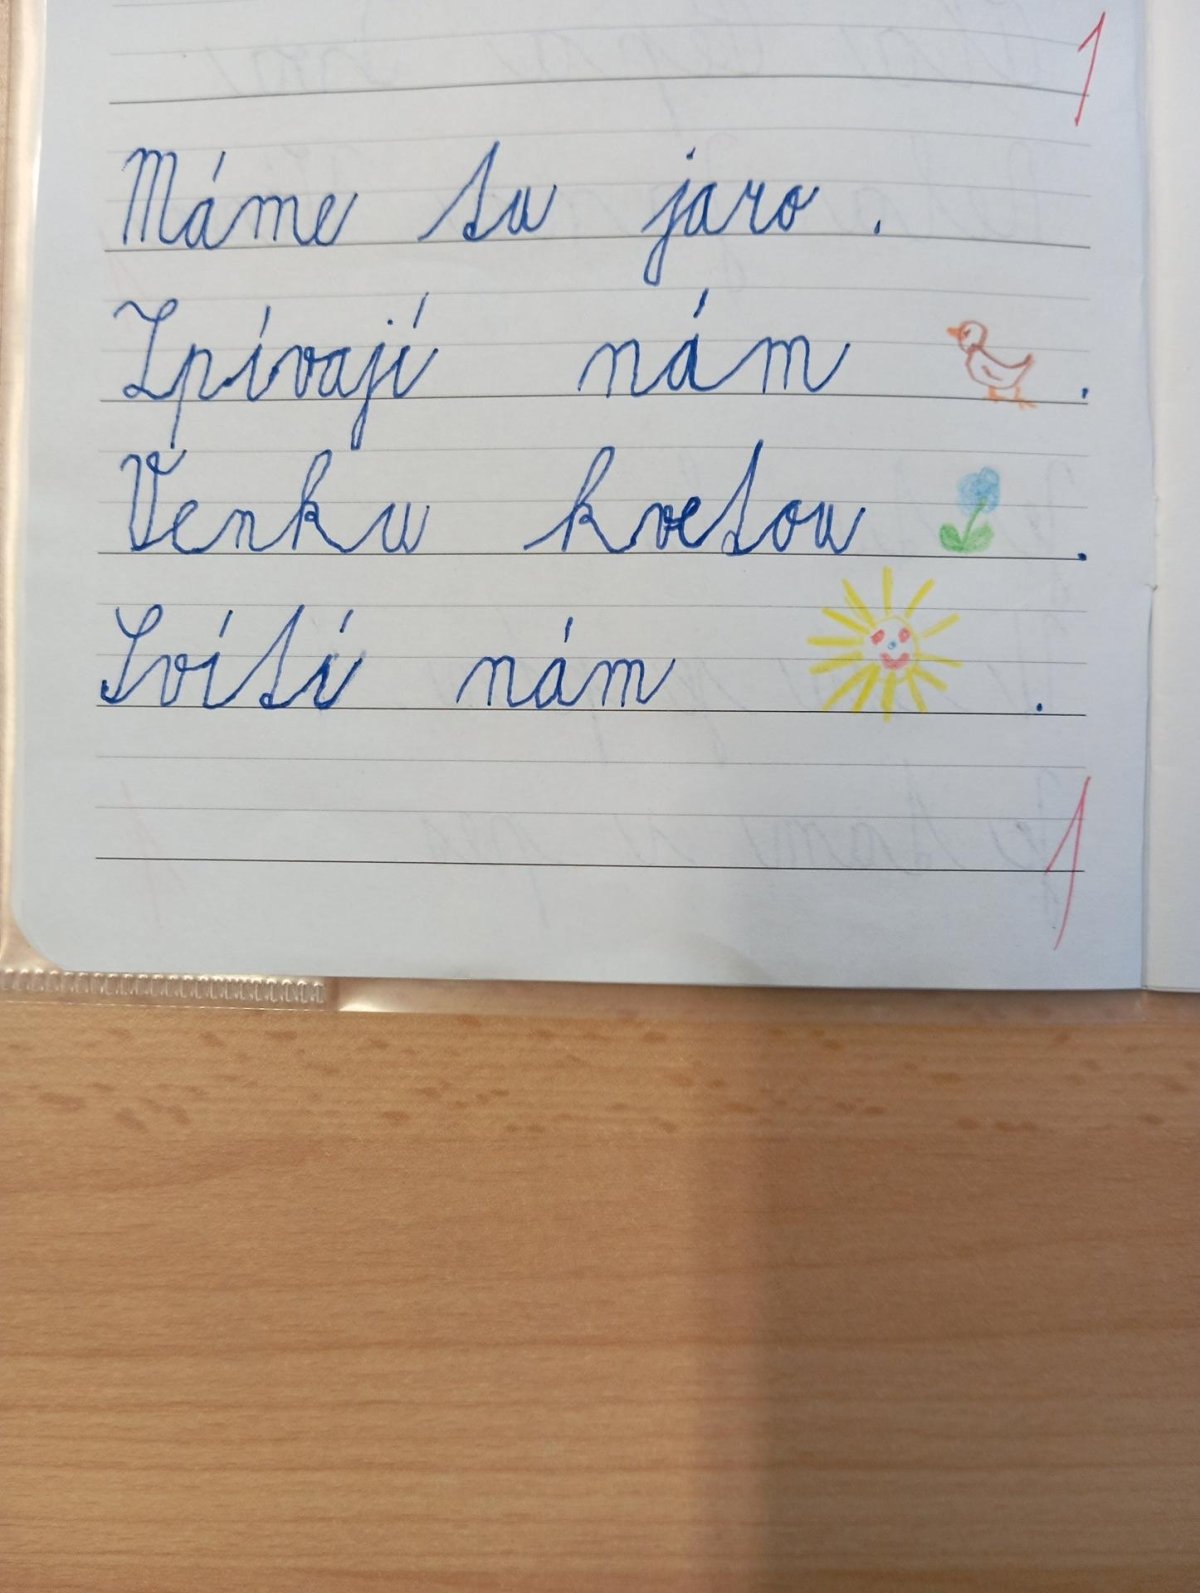 1
Máme tu jaro.
Zpívají nám .
Venku kvetou .
Svítí nám .
1